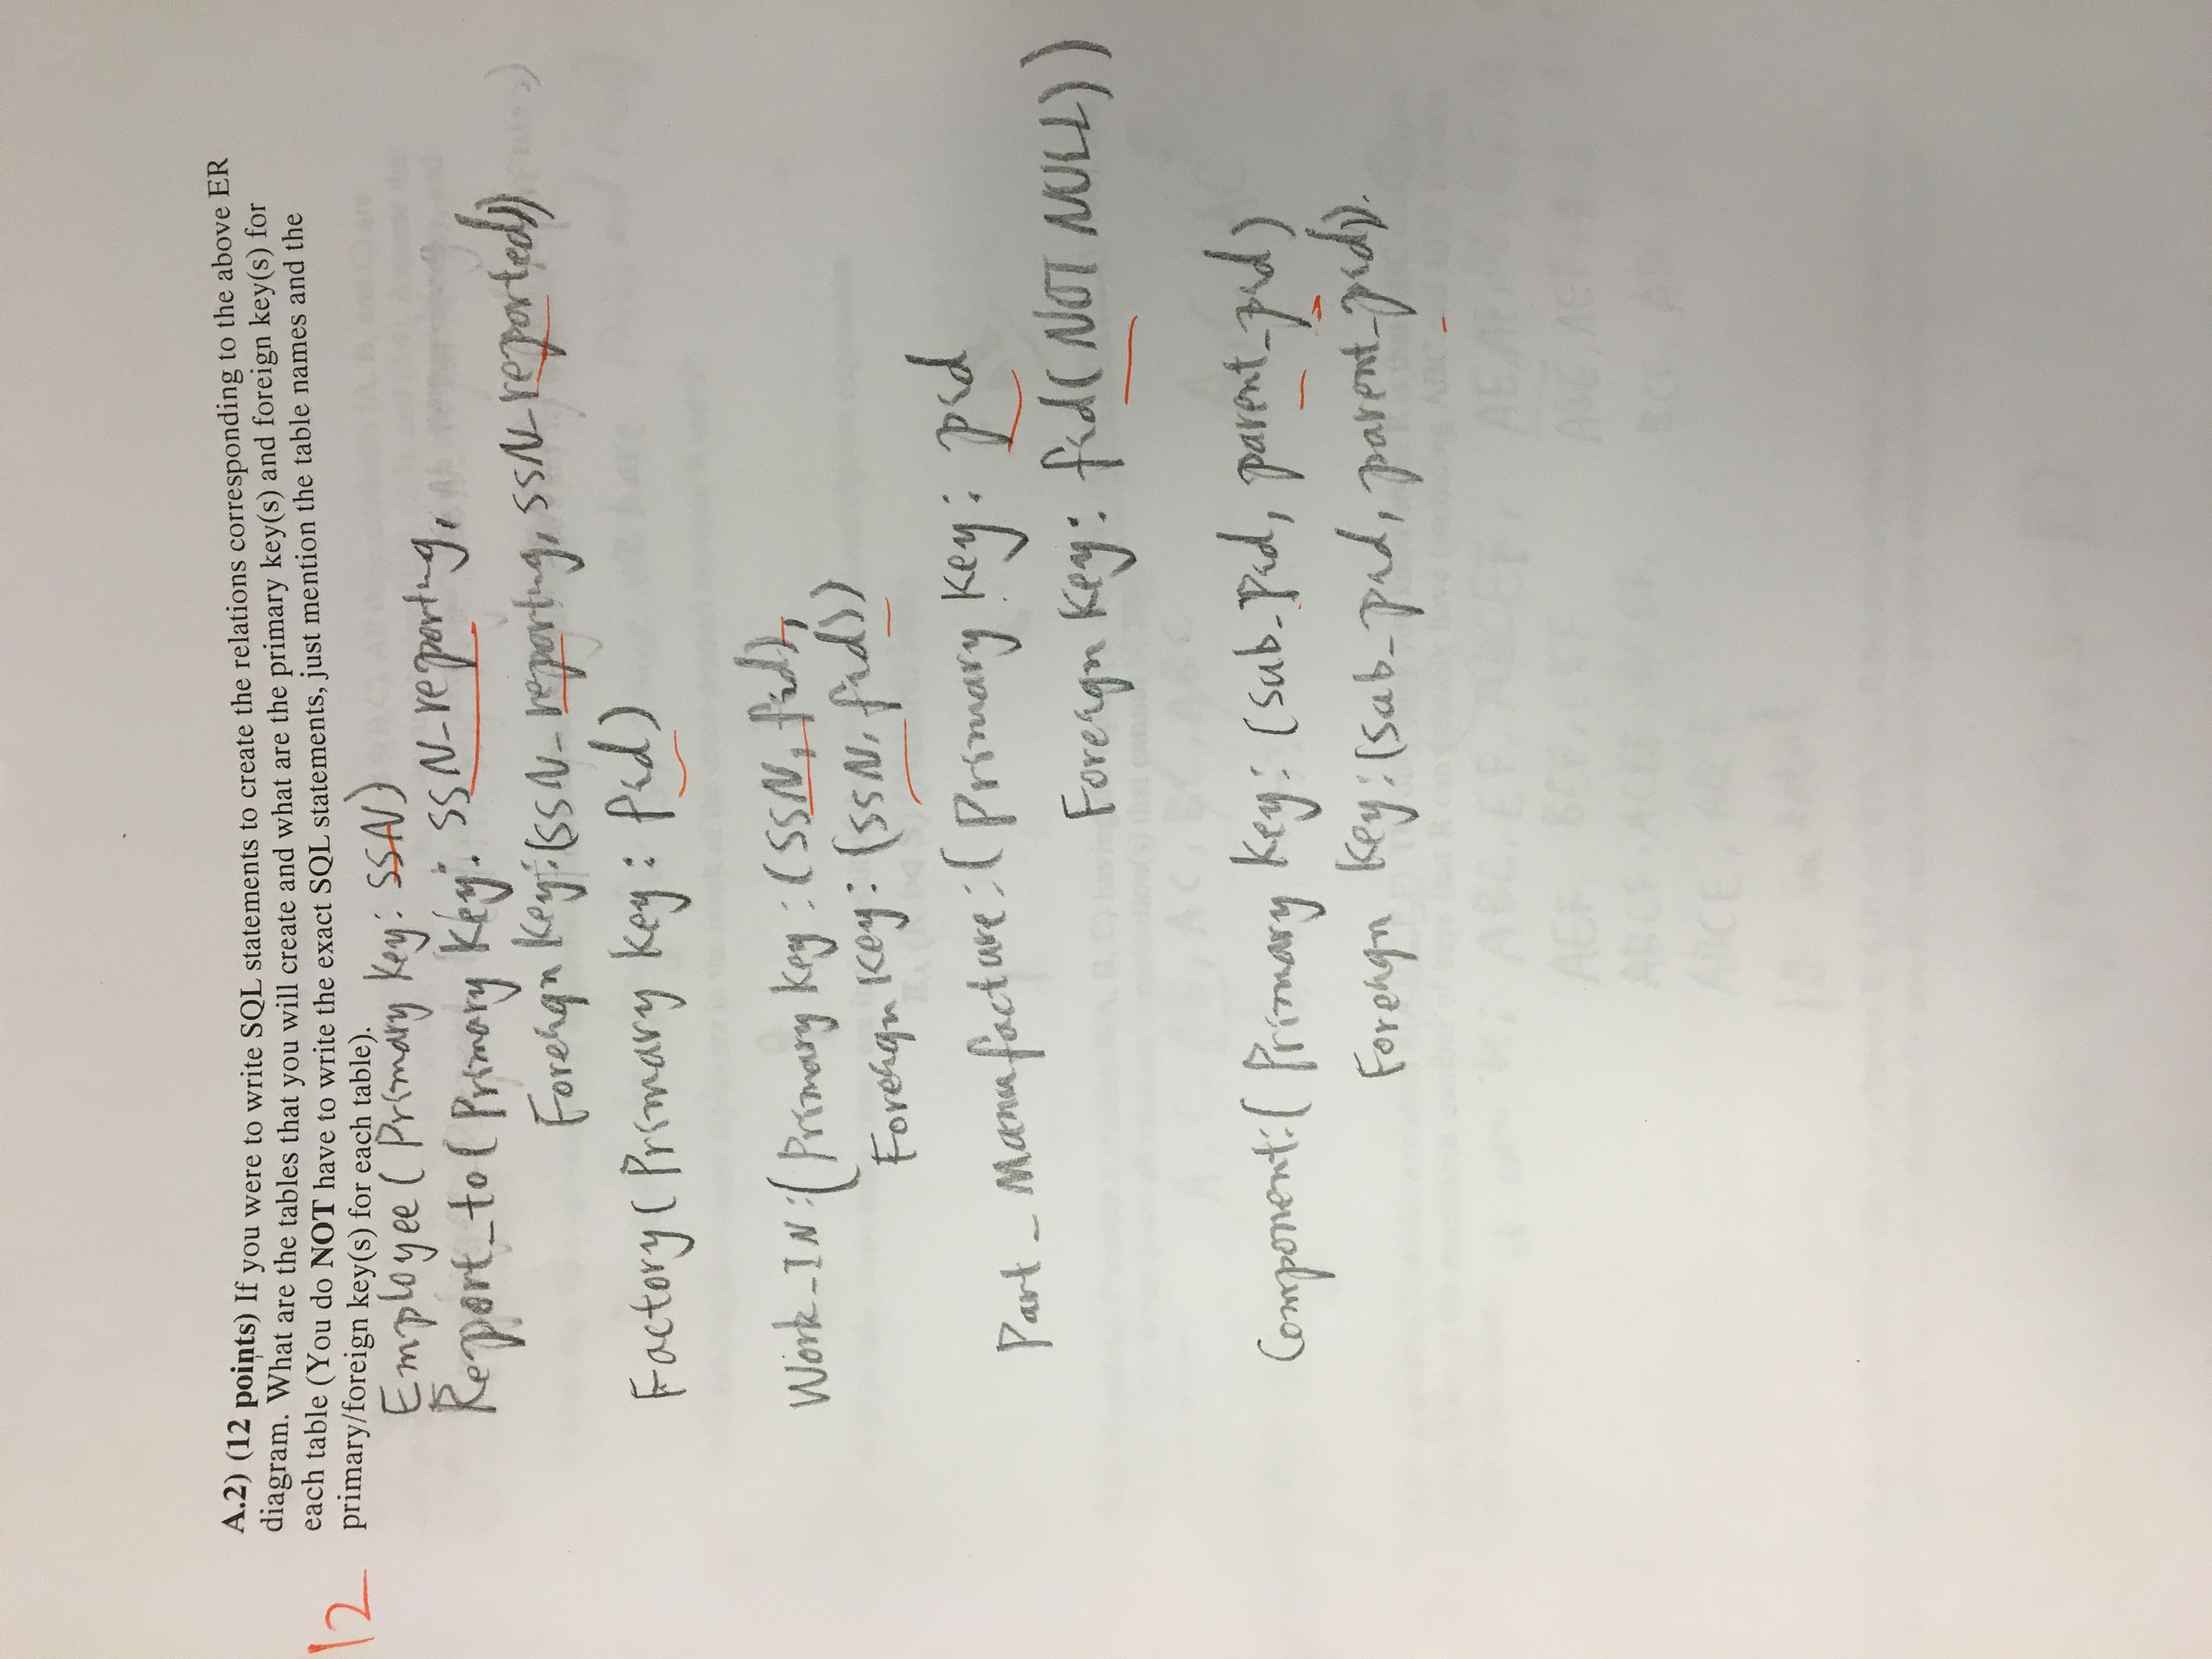 A.2) (12 points) If you were to write SQL statements to create the relations corresponding to the above ER
diagram. What are the tables that you will create and what are the primary key(s) and foreign key(s) for
each table (You do NOT have to write the exact SQL statements, just mention the table names and the
12 primary/foreign key(s) for each table).
Employee ( Primary Key: SSN)
Report_to ( Primary Key: SSN_reporting,
Foreign Key: (SSN_reporting, SSN_reported))
Factory ( Primary key: fid)
Work_IN:( Primary Key: (SSN, fid),
Foreign Key: (SSN, fid))
Part_Manufacture:( Primary Key: pid
Foreign Key: fid( NOT NULL))
Component:( Primary Key: (sub_pid, parent_pid)
Foreign Key: (sub_pid, parent_pid)).
A, C, AB, AC, BC, ABC
10 in total